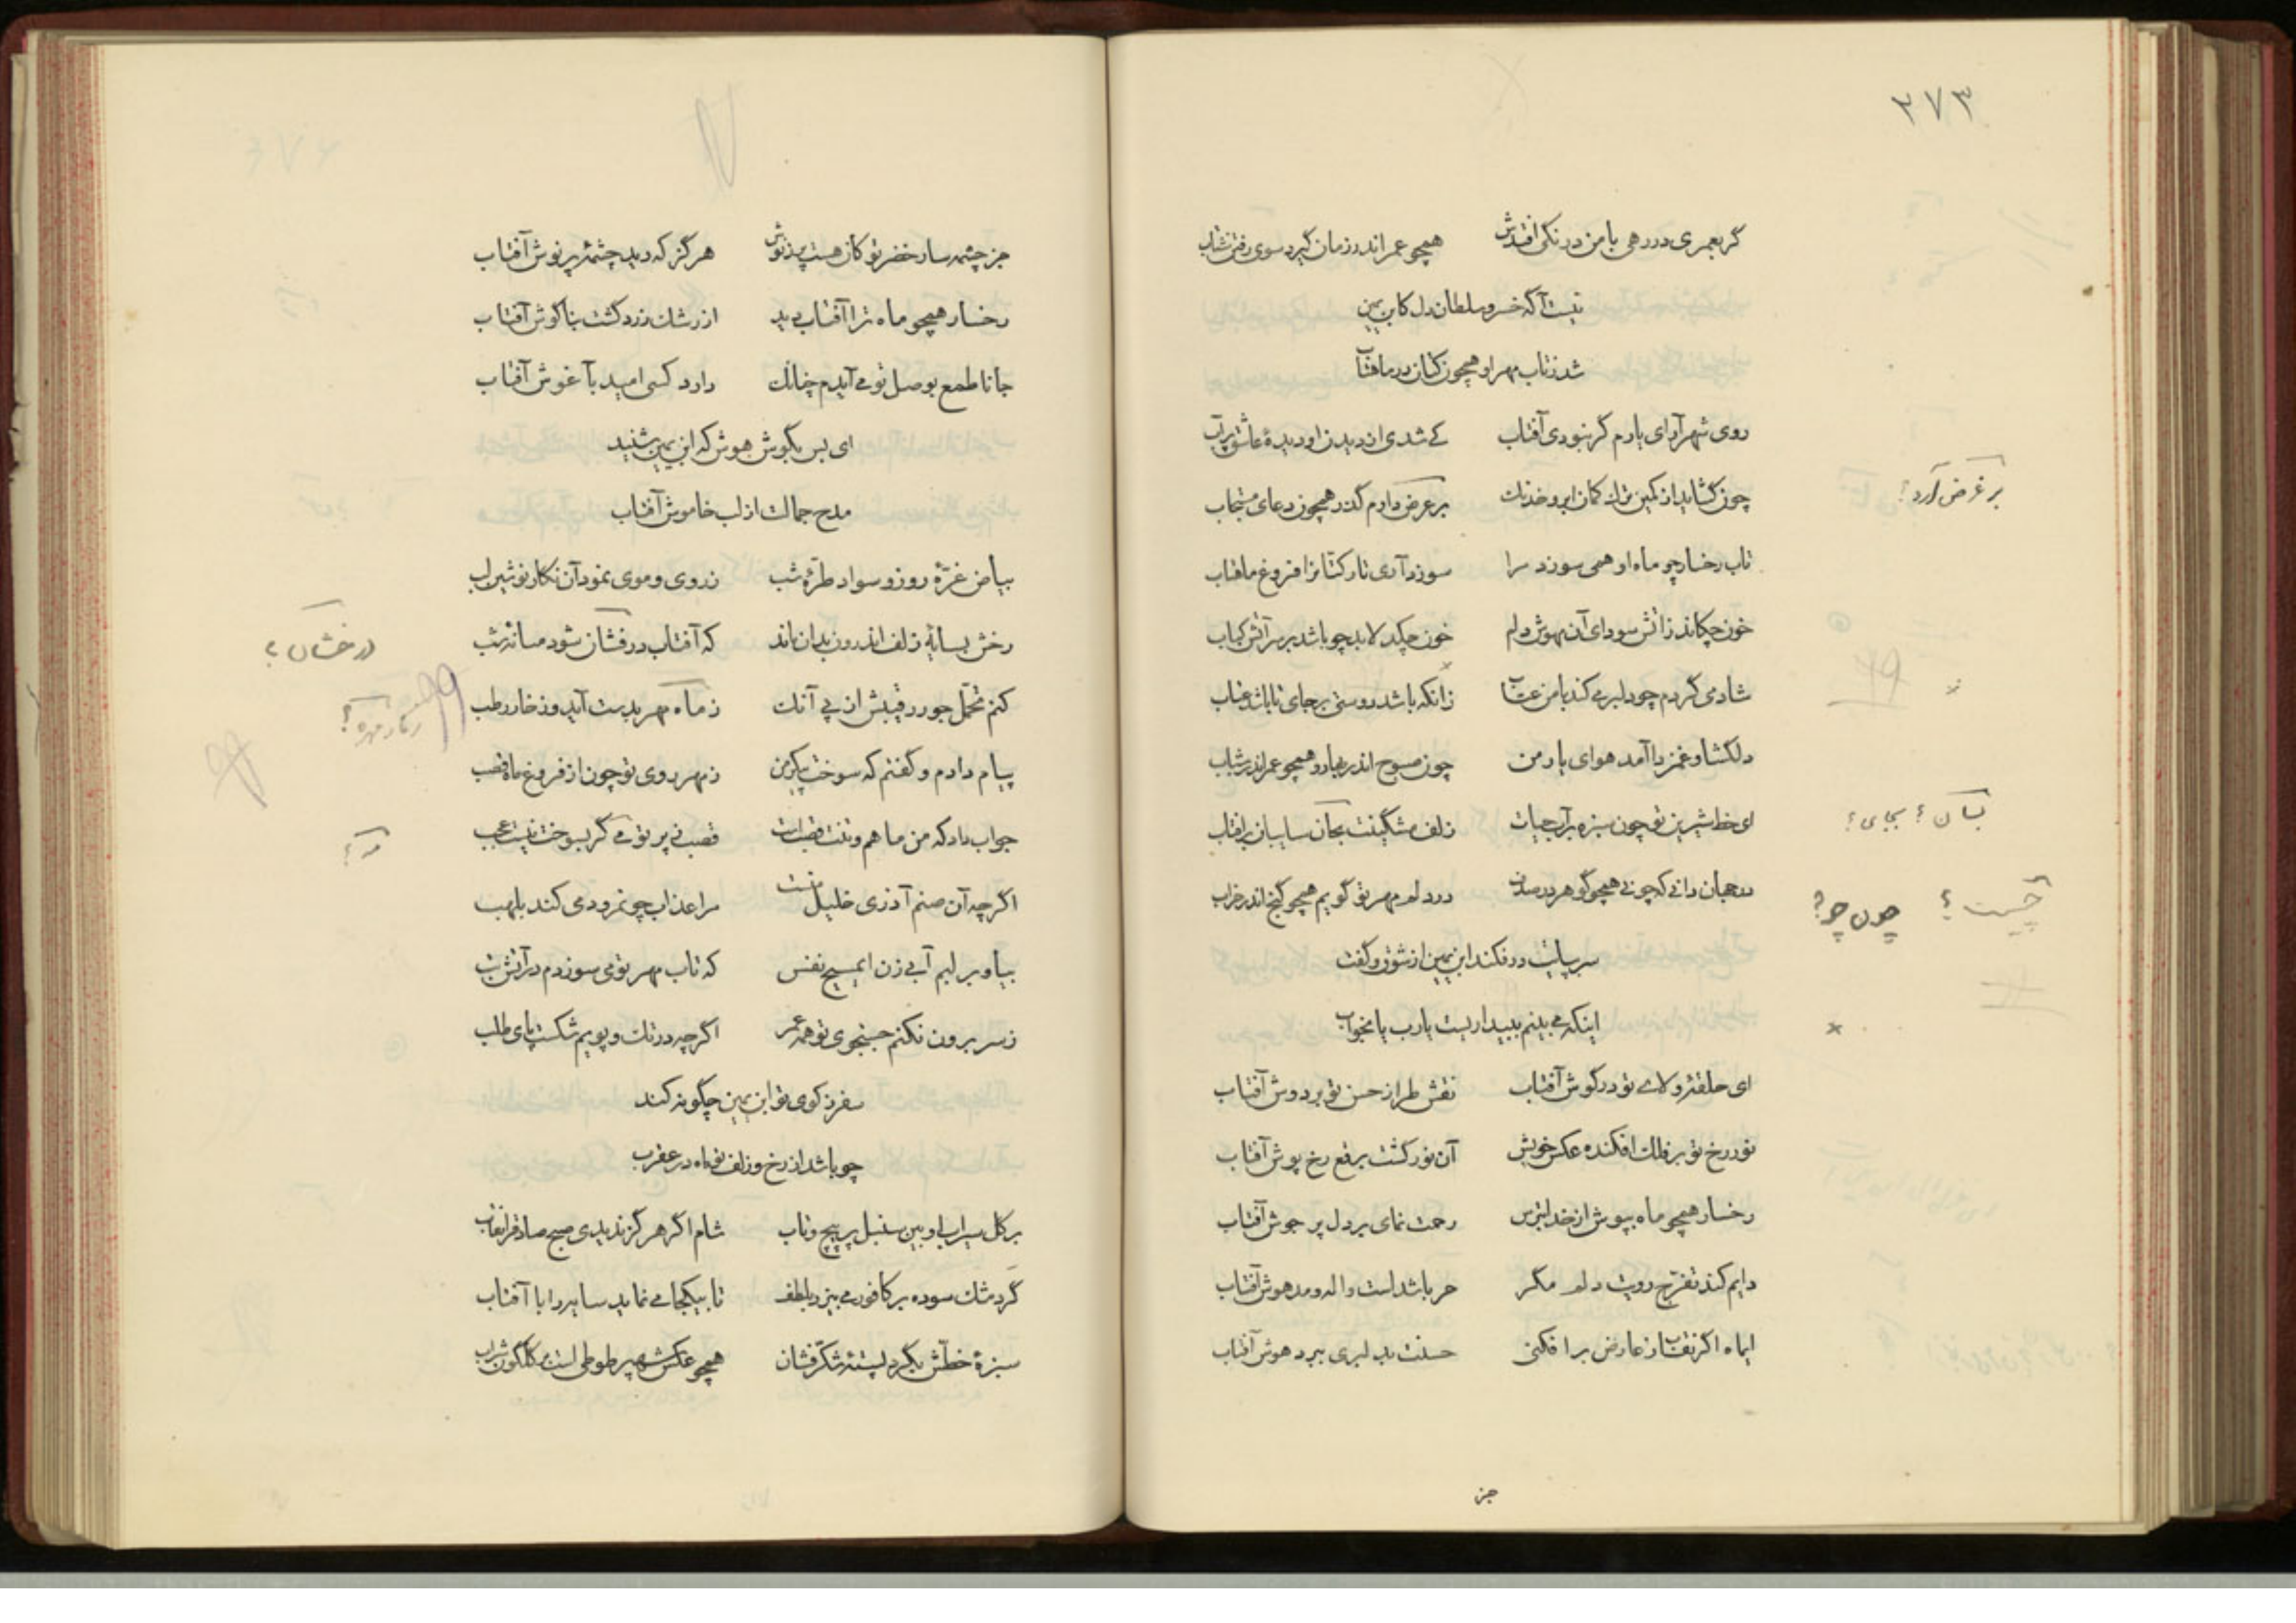 ۲۷۳
گر بعمری در رهی با من درنگی افتدش همچو عمر اندر زمان گیرد سوی رفتن شتاب
نیست آگه خسرو سلطان دل کابن یمین
شد ز تاب مهر او همچون کتان در ماهتاب
روی شهر آرای یارم گر نبودی آفتاب کے شدی از دیدن او دیدهٔ عاشق پر آب
چون گشاید از کمین ترک کمان ابرو خدنک بر غرض دارم گذر همچون دعای مستجاب
بر غرض آرد؟
تاب رخسار چو ماه او همی سوزد مرا سوزد آری تار کتانرا فروغ ماهتاب
خون چکاند ز آتش سودای آن مهوش دلم خون چکد لابد چو باشد بر سر آتش کباب
شادمی گردم چو دلبر می کند با من عتاب زانکه باشد دوستی بر جای تا باشد عتاب
دلگشا و غمزدا آمد هوای یار من چون صبوح اندر بهار و همچو عمر اندر شباب
ای خط شیرین تو چون سبزه بر آب حیات زلف مشگینت بجان سایبان بر آفتاب
بسان؟ بجای؟
در جهان دانی که چونے همچو گوهر در صدف در دلم مهر تو گویم همچو گنج اندر خراب
چیست؟ چون چه؟
سر بپایت در فکند ابن یمین از شوق و گفت
اینکه می بینم ببیداریست یارب یا بخواب
ای حلقهٔ ولاے تو در گوش آفتاب نقش طراز حسن تو بر دوش آفتاب
نور رخ تو بر فلک افکنده عکس خویش آن نور گشت برقع رخ پوش آفتاب
رخسار همچو ماه بپوش از خدا بترس رحمت نمای بر دل پر جوش آفتاب
دایم کند تفرج رویت دلم مگر حربا شداست واله و مدهوش آفتاب
ایماه اگر نقاب ز عارض بر افکنی حسنت بدلبری ببرد هوش آفتاب
جز
جز چشمه سار خضر تو کان هست پر ز نوش هرگز که دید چشمهٔ پر نوش آفتاب
رخسار همچو ماه ترا آفتاب دید از رشک زرد گشت بناگوش آفتاب
جانا طمع بوصل تو می آیدم چنانک دارد کسی امید بآغوش آفتاب
ای بس بگوش هوش که ابن یمین شنید
مدح جمالت از لب خاموش آفتاب
بیاض غرّهٔ روز و سواد طرّهٔ شب ز روی و موی نمود آن نگار نوشین لب
رخش بسایهٔ زلف اندرون بدان ماند که آفتاب درفشان شود میانهٔ شب
درخشان؟
کنم تحمّل جور رقیبش از پی آنک ز ماه مهر بدست آید و ز خار رطب
پیام دادم و گفتم که سوخت پیکر من ز مهر روی تو چون از فروغ ماه قصب
جواب داد که من ماهم و تنت قصب است قصب نی پرتو مے گر بسوخت نیست عجب
مه؟
اگر چه آن صنم آذری خلیل منست مرا عذاب چو نمرود می کند بلهب
بیا و بر لبم آبی زن ای مسیح نفس که تاب مهر تو می سوزدم در آتش تب
ز سر برون نکنم جستجوی تو همه عمر اگر چه در تک و پویم شکست پای طلب
سفر ز کوی تو ابن یمین چگونه کند
چو باشد از رخ و زلف تو ماه در عقرب
بر گل سیراب او بین سنبل پر پیچ و تاب شام اگر هرگز ندیدی صبح صادقرا نقاب
گرد مشک سوده بر کافور می بیزد بلطف تا بیکجا مے نماید سایه را با آفتاب
سبزهٔ خطّش بگرد پستهٔ شکّر فشان همچو عکس شهپر طوطی است بر گلگون شراب